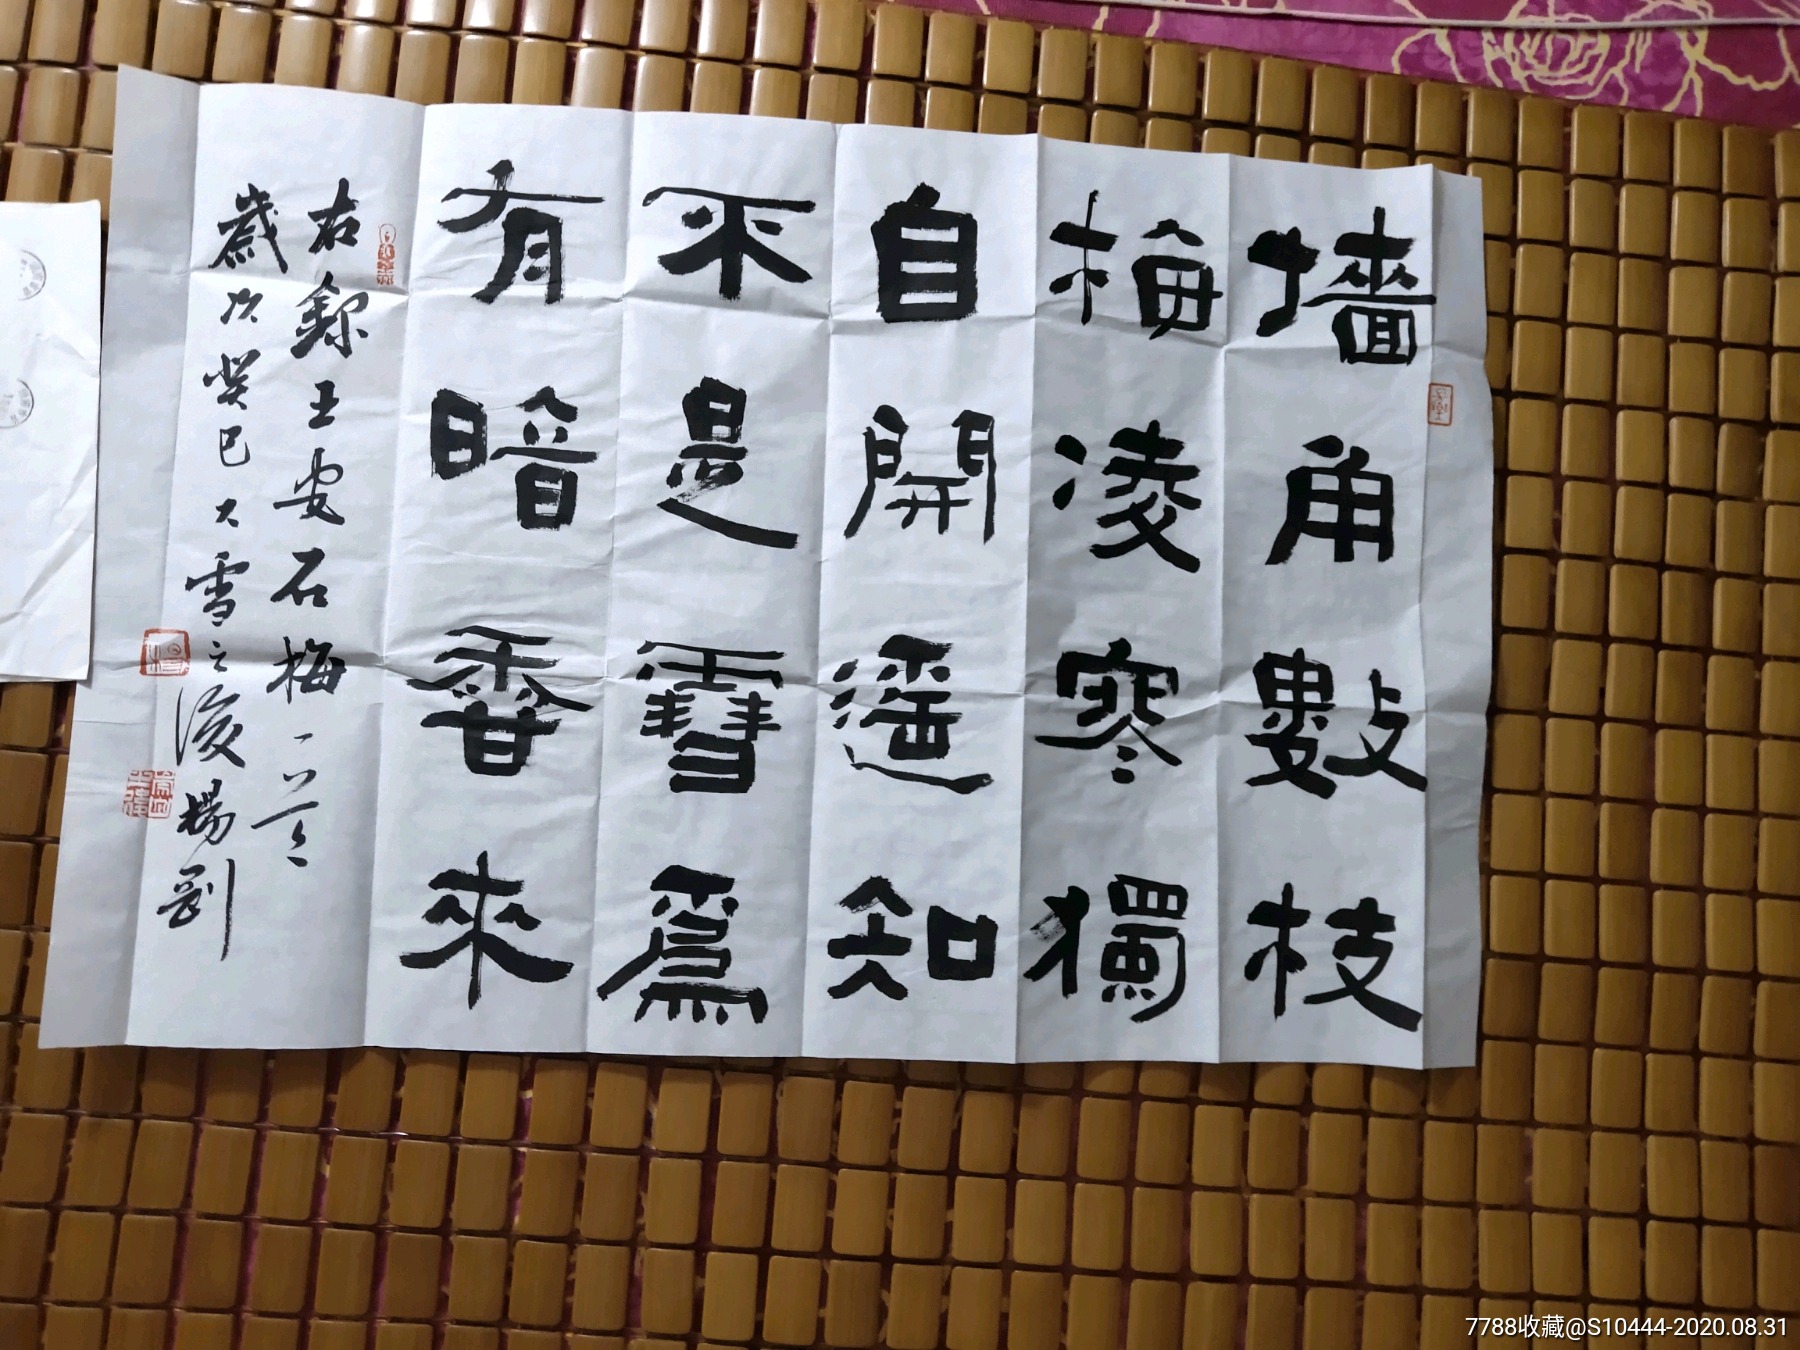 墻角數枝
梅凌寒獨
自開遥知
不是雪爲
有暗香來
右録王安石梅一首
歲次癸巳大雪之後楊剛
7788收藏@S10444-2020.08.31